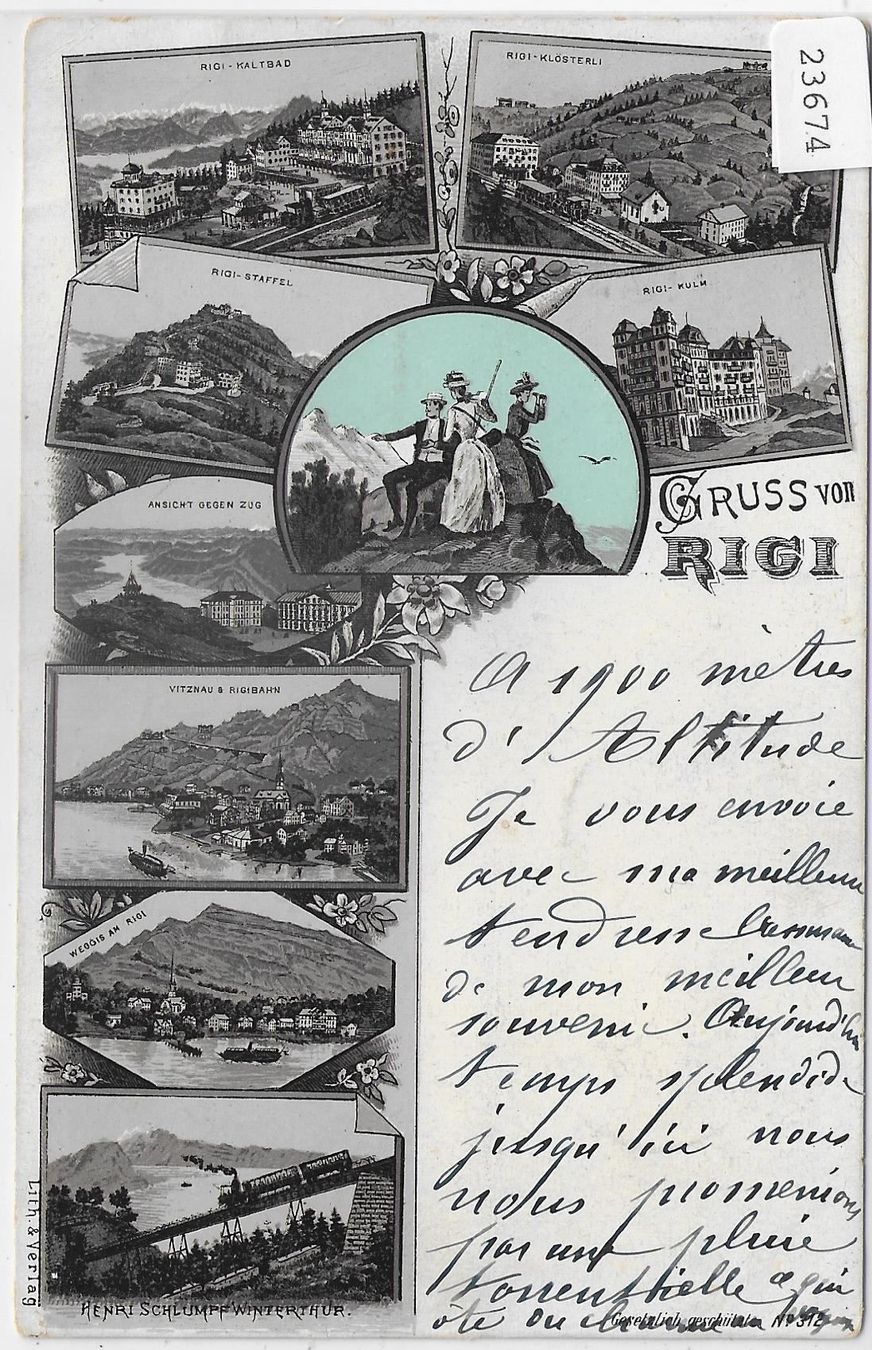 RIGI-KALTBAD
RIGI-KLÖSTERLI
23674
RIGI-STAFFEL
RIGI-KULM
ANSICHT GEGEN ZUG
GRUSS VON
RIGI
VITZNAU & RIGIBAHN
WEGGIS AM RIGI
A 1900 mètres
d'Altitude
Je vous envoie
avec ma meilleure
tendresse
de mon meilleur
souvenir. Aujourd'hui
temps splendide
jusqu'ici nous
nous promenions
par une pluie
torrentielle qui
ôte du charme
Lith. & Verlag
HENRI SCHLUMPF WINTERTHUR.
Gesetzlich geschützt No 312